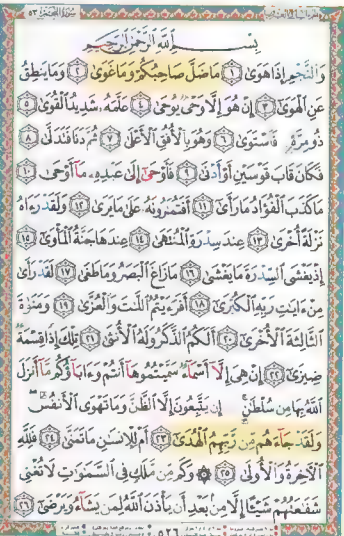 سورة النجم ٥٣
بِسْمِ اللَّهِ الرَّحْمَٰنِ الرَّحِيمِ
وَالنَّجْمِ إِذَا هَوَىٰ ۝١ مَا ضَلَّ صَاحِبُكُمْ وَمَا غَوَىٰ ۝٢ وَمَا يَنطِقُ
عَنِ الْهَوَىٰ ۝٣ إِنْ هُوَ إِلَّا وَحْيٌ يُوحَىٰ ۝٤ عَلَّمَهُ شَدِيدُ الْقُوَىٰ ۝٥
ذُو مِرَّةٍ فَاسْتَوَىٰ ۝٦ وَهُوَ بِالْأُفُقِ الْأَعْلَىٰ ۝٧ ثُمَّ دَنَا فَتَدَلَّىٰ ۝٨
فَكَانَ قَابَ قَوْسَيْنِ أَوْ أَدْنَىٰ ۝٩ فَأَوْحَىٰ إِلَىٰ عَبْدِهِ مَا أَوْحَىٰ ۝١٠
مَا كَذَبَ الْفُؤَادُ مَا رَأَىٰ ۝١١ أَفَتُمَارُونَهُ عَلَىٰ مَا يَرَىٰ ۝١٢ وَلَقَدْ رَآهُ
نَزْلَةً أُخْرَىٰ ۝١٣ عِندَ سِدْرَةِ الْمُنتَهَىٰ ۝١٤ عِندَهَا جَنَّةُ الْمَأْوَىٰ ۝١٥
إِذْ يَغْشَى السِّدْرَةَ مَا يَغْشَىٰ ۝١٦ مَا زَاغَ الْبَصَرُ وَمَا طَغَىٰ ۝١٧ لَقَدْ رَأَىٰ
مِنْ آيَاتِ رَبِّهِ الْكُبْرَىٰ ۝١٨ أَفَرَأَيْتُمُ اللَّاتَ وَالْعُزَّىٰ ۝١٩ وَمَنَاةَ
الثَّالِثَةَ الْأُخْرَىٰ ۝٢٠ أَلَكُمُ الذَّكَرُ وَلَهُ الْأُنثَىٰ ۝٢١ تِلْكَ إِذًا قِسْمَةٌ
ضِيزَىٰ ۝٢٢ إِنْ هِيَ إِلَّا أَسْمَاءٌ سَمَّيْتُمُوهَا أَنتُمْ وَآبَاؤُكُم مَّا أَنزَلَ
اللَّهُ بِهَا مِن سُلْطَانٍ إِن يَتَّبِعُونَ إِلَّا الظَّنَّ وَمَا تَهْوَى الْأَنفُسُ
وَلَقَدْ جَاءَهُم مِّن رَّبِّهِمُ الْهُدَىٰ ۝٢٣ أَمْ لِلْإِنسَانِ مَا تَمَنَّىٰ ۝٢٤ فَلِلَّهِ
الْآخِرَةُ وَالْأُولَىٰ ۝٢٥ ۞ وَكَم مِّن مَّلَكٍ فِي السَّمَاوَاتِ لَا تُغْنِي
شَفَاعَتُهُمْ شَيْئًا إِلَّا مِن بَعْدِ أَن يَأْذَنَ اللَّهُ لِمَن يَشَاءُ وَيَرْضَىٰ ۝٢٦
٥٢٦